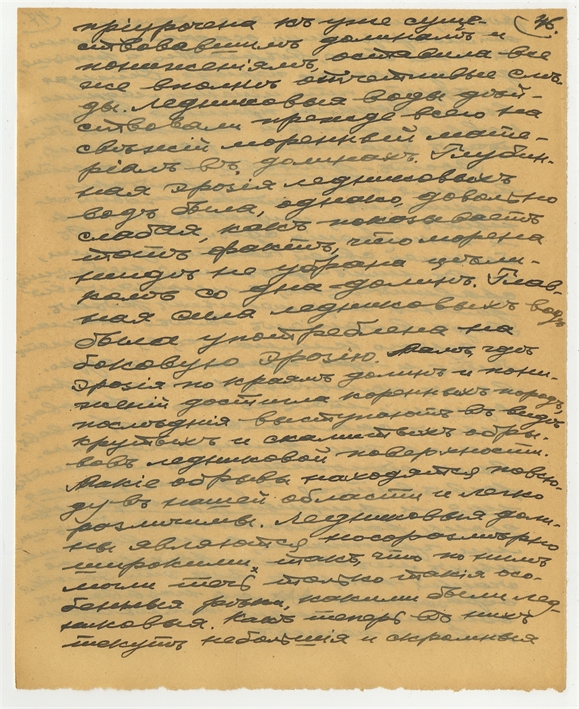 76.
пріурочена къ уже суще-
ствовавшимъ долинамъ и
пониженіямъ, оставила все
же вполнѣ отчетливые слѣ-
ды. Ледниковыя воды дѣй-
ствовали прежде всего на
свѣжій моренный мате-
ріалъ въ долинахъ. Глубин-
ная эрозія ледниковыхъ
водъ была, однако, довольно
слабая, какъ показываетъ
тотъ фактъ, что морена
нигдѣ не убрана цѣли-
комъ со дна долинъ. Глав-
ная сила ледниковыхъ водъ
была употреблена на
боковую эрозію. Тамъ, гдѣ
эрозія по краямъ долинъ и пони-
женій достигла коренныхъ породъ,
послѣднія выступаютъ въ видѣ
крутыхъ и скалистыхъ обры-
вовъ ледниковой поверхности.
Такіе обрывы находятся повсю-
ду въ нашей области и легко
различимы. Ледниковыя доли-
ны являются несоразмѣрно
широкими, такъ, что по нимъ
могли течь только такія осо-
бенныя рѣки, какими были лед-
никовыя. Какъ теперь въ нихъ
текутъ небольшія и скромныя